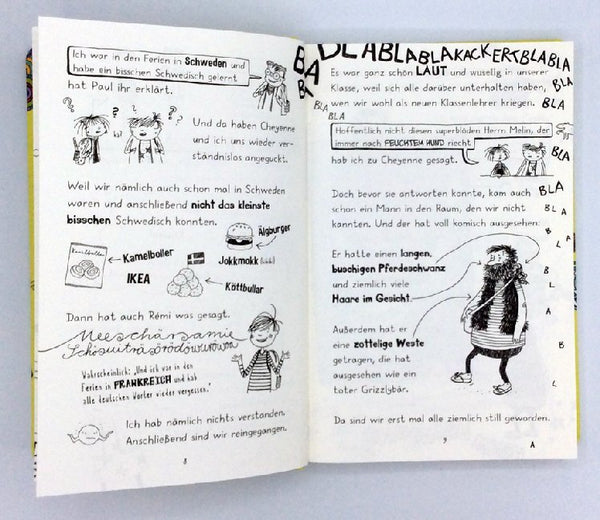 Ich war in den Ferien in Schweden und
habe ein bisschen Schwedisch gelernt
hat Paul ihr erklärt.
? ? ? ?
Und da haben Cheyenne
und ich uns wieder ver-
ständnislos angeguckt.
Weil wir nämlich auch schon mal in Schweden
waren und anschließend nicht das kleinste
bisschen Schwedisch konnten.
Älgburger
Kanelboller
IKEA
Jokkmokk
Köttbullar
Dann hat auch Rémi was gesagt.
Wahrscheinlich: „Und ich war in den
Ferien in FRANKREICH und hab
alle deutschen Wörter wieder vergessen."
Ich hab nämlich nichts verstanden.
Anschließend sind wir reingegangen.
8
BLA BLABLABLAKACKERTBLABLA
BLA
Es war ganz schön LAUT und wuselig in unserer
Klasse, weil sich alle darüber unterhalten haben,
wen wir wohl als neuen Klassenlehrer kriegen.
BLA
BLA
BLA
BLA
Hoffentlich nicht diesen superblöden Herrn Melin, der
immer nach PEUCHTEM HUND riecht
hab ich zu Cheyenne gesagt.
BLA
Doch bevor sie antworten konnte, kam auch
schon ein Mann in den Raum, den wir nicht
kannten. Und der hat voll komisch ausgesehen:
BLA
BLA
BLA
Er hatte einen langen,
buschigen Pferdeschwanz
und ziemlich viele
Haare im Gesicht.
Außerdem hat er
eine zottelige Weste
getragen, die hat
ausgesehen wie ein
toter Grizzlybär.
B
L
A
B
L
Da sind wir erst mal alle ziemlich still geworden.
9
A